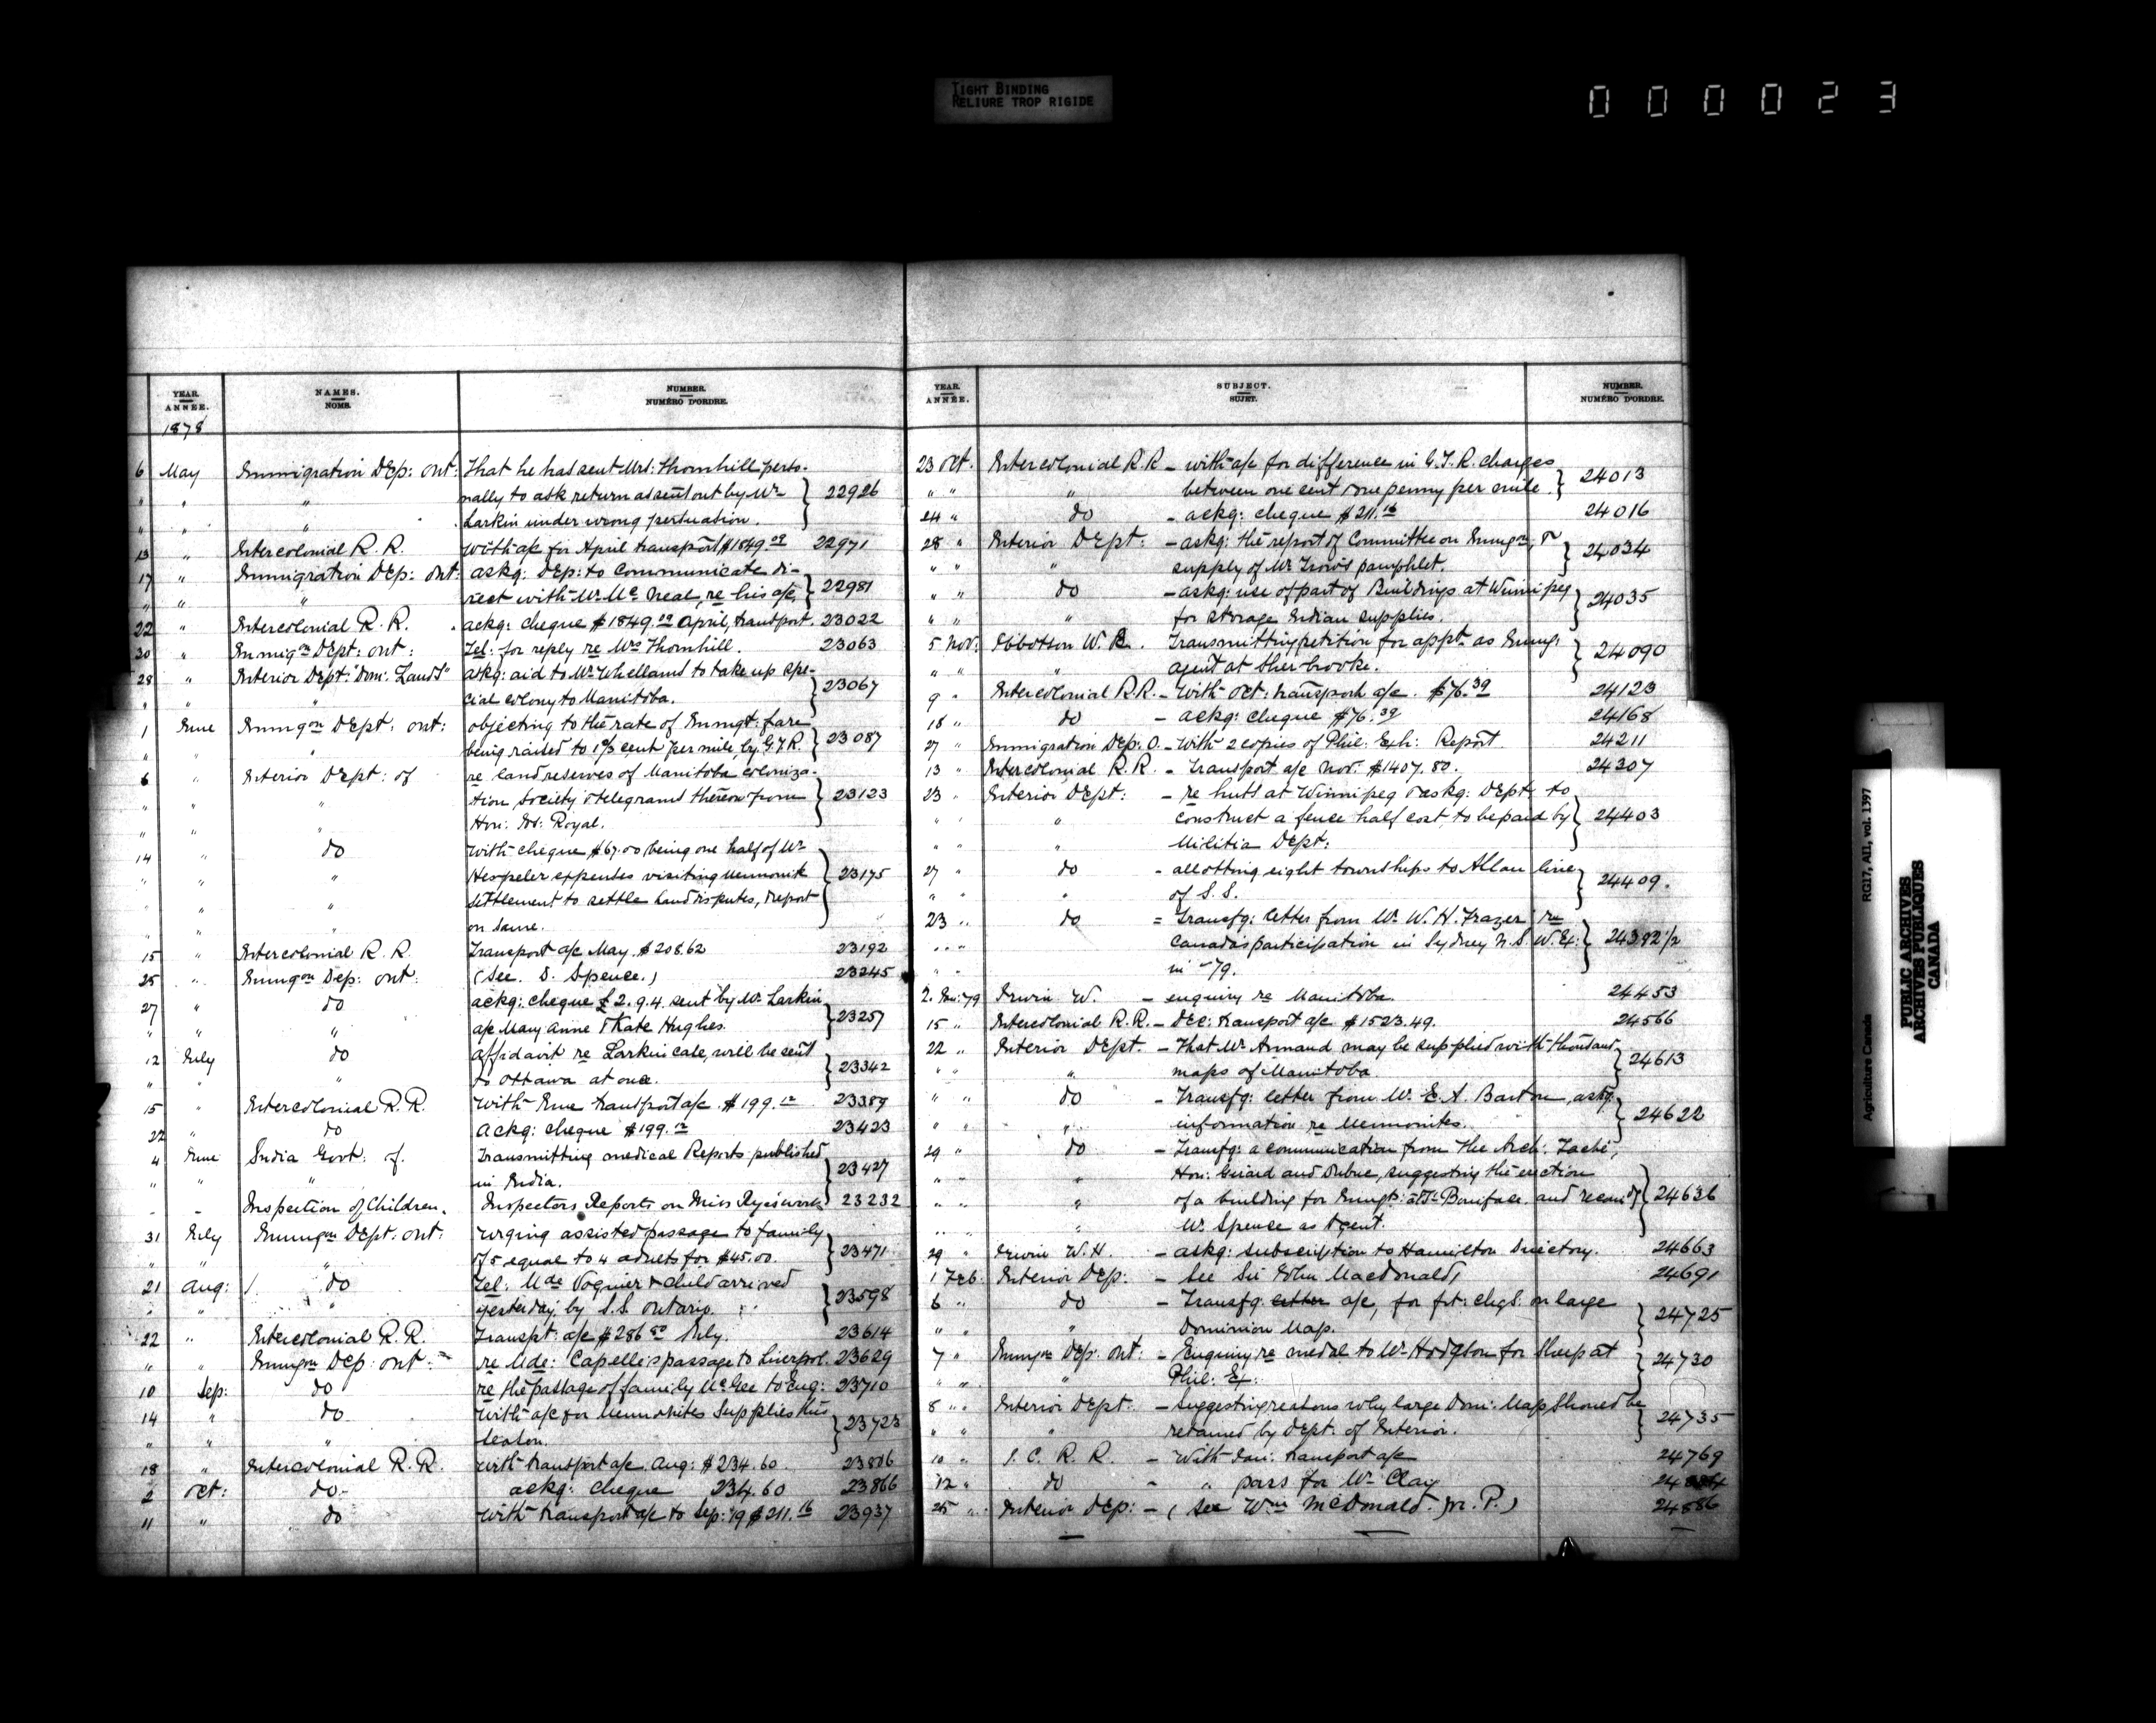 TIGHT BINDING
RELIURE TROP RIGIDE
000023
YEAR. ANNÉE. NAMES. NOMS. NUMBER. NUMÉRO D'ORDRE.
1878
6 May Immigration Dep: Ont: That he has sent Mrs: Thornhill perso-
" " " nally to ask return as sent out by Mr 22926
" " " Larkin under wrong persuation.
13 " Intercolonial R. R. With a/c for April transport $1849.29 22971
17 " Immigration Dep: Ont: askg: Dep: to communicate di-
" " " rect with Mr Mc Neal, re his a/c, 22981
22 " Intercolonial R. R. ackg: cheque $1849.29 April, transport. 23022
30 " Immign Dept: Ont: Tel: for reply re Mrs Thornhill. 23063
28 " Interior Dept: "Dom: Lands" askg: aid to Mr Whellams to take up spe-
" " " cial colony to Manitoba. 23067
1 June Immgon Dept: Ont: objecting to the rate of Immgt: fare
" " " being raised to 1 cent per mile, by G.T.R. 23087
6 " Interior Dept: of re land reserves of Manitoba coloniza-
" " " tion Society & telegrams thereon from 23123
" " " Hon: Mr: Royal.
14 " do With cheque $67.00 being one half of Mr
" " " Hespeler expenses visiting Mennonite 23175
" " " Settlement to settle land disputes, & report
" " on same.
15 " Intercolonial R. R. Transport a/c May. $208.62 23192
25 " Immgon Dep: Ont: (See. D. Spence.) 23245
27 " do ackg: cheque £2.9.4. sent by Mr Larkin
" " " a/c Mary Anne & Kate Hughes. 23257
12 July do Affidavit re Larkin case, will be sent
" " " to Ottawa at once. 23342
15 " Intercolonial R. R. With June transport a/c. $199.12 23389
22 " do Ackg: cheque $199.12 23423
4 June India Govt: of. Transmitting medical Reports published
" " " in India. 23427
- - Inspection of Children. Inspectors Reports on Miss Rye's work 23232
31 July Immgon Dept: Ont: urging assisted passage to family
" " " of 5 equal to 4 adults for $45.00. 23471
21 Aug: do Tel: Mde Vognier & child arrived
" " " yesterday by S.S. Ontario. 23598
22 " Intercolonial R. R. Transpt: a/c $286.50 July. 23614
" " Immgon Dep: Ont: re Mde: Capelle's passage to Liverpol. 23629
10 Sep: do re the passage of family McGee to Eng: 23710
14 " do With a/c for Mennonites Supplies this
" " " season. 23723
18 " Intercolonial R. R. With transport a/c. Aug: $234.60 23806
2 Oct: do ackg: cheque 234.60 23866
11 " do With transport a/c to Sep: '79 $211.16 23937
YEAR. ANNÉE. SUBJECT. SUJET. NUMBER. NUMÉRO D'ORDRE.
23 Oct. Intercolonial R.R - with a/c for difference in G.T.R. charges
" " " between one cent & one penny per mile. 24013
24 " do - ackg: cheque $211.16 24016
28 " Interior Dept: - askg: the report of Committee on Immgon, &
" " " supply of Mr Trow's pamphlet. 24034
" " do - askg: use of part of Buildings at Winnipeg
" " " for storage Indian supplies. 24035
5 Nov: Ibbotson W. R. Transmitting petition for appt as Immg:
" " " agent at Sherbrooke. 24090
9 " Intercolonial R.R. - With Oct: transport a/c. $76.39 24123
18 " do - ackg: cheque $76.39 24168
27 " Immigration Dep: O. - With 2 copies of Phil: Exh: Report 24211
13 " Intercolonial R. R. - Transport a/c Nov: $1407.80. 24307
23 " Interior Dept: - re huts at Winnipeg & askg: Dept: to
" " " construct a fence half cost, to be paid by 24403
" " " Militia Dept:
27 " do - allotting eight townships to Allan line
" " " of S.S. 24409.
23 " do = Transfg: letter from Mr W. H. Frazer re
" " Canada's participation in Sydney N.S.W. Ex: 24392 1/2
" " in -79.
2. Jan: 79 Irwin W. - enquiry re Manitoba. 24453
15 " Intercolonial R.R. - Dec: transport a/c $1523.49. 24566
22 " Interior Dept. - That Mr Armand may be supplied with thousand
" " " maps of Manitoba. 24613
" " do - Transfg: letter from Mr E. A. Barton, askg:
" " " information re Mennonites. 24622
29 " do - Transfg: a communication from The Arch: Taché,
" " " Hon: Girard and Dubuc, suggesting the erection
" " " of a building for Immgts: at St: Boniface. and recomdg 24636
" " " Mr Spense as Agent.
29 " Irwin W. H. - askg: subscription to Hamilton Directory. 24663
1 Feb. Interior Dep: - See Sir John Macdonald, 24691
6 " do - Transfg: letter a/c, for frt: chgs. on large
" " " Dominion Map. 24725
7 " Immgon Dep: Ont: - Enquiry re medal to Mr Hodgson for Sheep at
" " " Phil: Ex: 24730
8 " Interior Dept: - Suggesting reasons why large Dom: Map should be
" " " retained by Dept. of Interior. 24735
10 " I. C. R. R. - With Jan: transport a/c 24769
12 " do - " pass for Mr Clay
25 " Interior Dep: - (See Wm McDonald. M. P.) 24886
Agriculture Canada RG17, AII, vol. 1397
PUBLIC ARCHIVES
ARCHIVES PUBLIQUES
CANADA